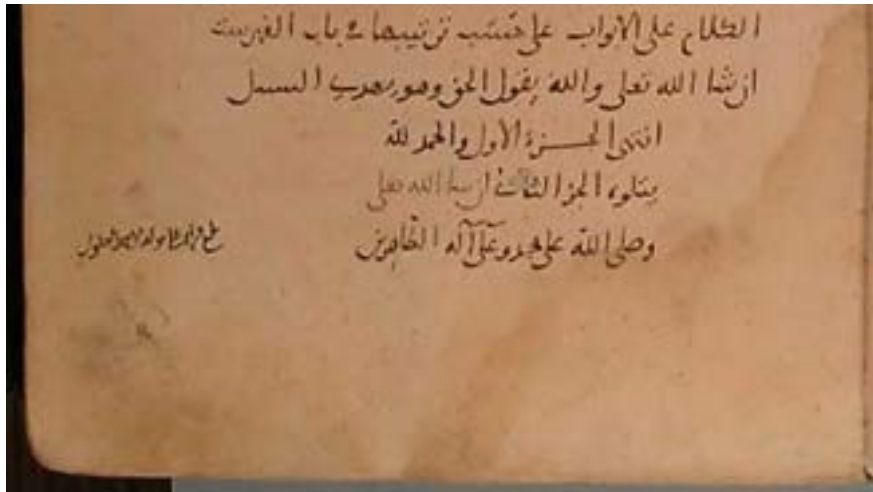 الكلام على الابواب على حسب ترتيبها في باب الفهرست
ان شا الله تعلى والله يقول الحق وهو يهدي السبيل
انتهى الجزء الاول والحمد لله
يتلوه الجز الثاني ان شا الله تعلى
وصلى الله على محمد وعلى آله الطاهرين